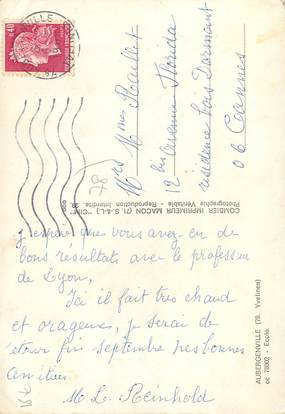 Mrs Mme Raillet
12 bis avenue Florida
résidence bois Dormant
06 Cannes
COMBIER IMPRIMEUR MACON (71. S.-&-L.) "CIM"
Photographie Véritable - Reproduction Interdite
78
J'espère que vous avez eu de
bons résultats avec le professeur
de Lyon,
Ici il fait très chaud
et orageux, je serai de
retour fin septembre mes bonnes
amitiées.
M. L. Reinhold
AUBERGENVILLE (78. Yvelines)
cc 78002 - Ecole